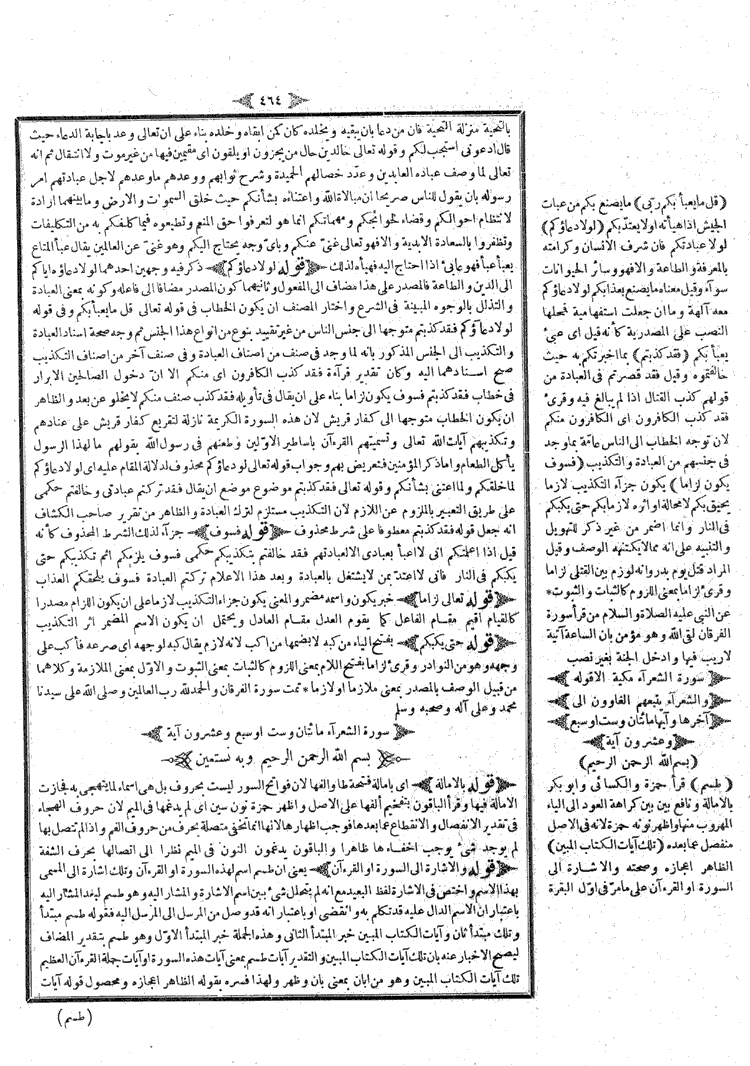 ﴿ ٤٦٤ ﴾
بالتحية منزلة التحية فان من دعا بان يبقيه ويخلده كان كمن ابقاه وخلده بناء على ان تعالى وعد باجابة الدعاء حيث
قال ادعونى استجب لكم وقوله تعالى خالدين حال من يجزون او يلقون اى مقيمين فيها من غير موت ولا انتقال ثم انه
تعالى لما وصف عباده العابدين وعدّد خصالهم الحميدة وشرح ثوابهم ووعدهم ما وعدهم لاجل عبادتهم امر
رسوله بان يقول للناس صريحا ان مبالاة الله واعتناءه بشأنكم حيث خلق السموات والارض وما بينهما ارادة
لانتظام احوالكم وقضاء لحوائجكم ومهماتكم انما هو لتعرفوا حق المنعم وتطيعوه فيما كلفكم به من التكليفات
وتظفروا بالسعادة الابدية والافهو تعالى غنىّ عنكم وباىّ وجه يحتاج اليكم وهو غنىّ عن العالمين يقال عبأ المتاع
يعبأ عبأ فهو عابئ اذا احتاج اليه فهيأه لذلك ﴿قوله لولا دعاؤكم﴾ ذكر فيه وجهين احدهما لولا دعاؤه اياكم
الى الدين والطاعة فالمصدر على هذا مضاف الى المفعول وثانيهما كون المصدر مضافا الى فاعله وكونه بمعنى العبادة
والتذلل بالوجوه المبينة فى الشرع واختار المصنف ان يكون الخطاب فى قوله تعالى قل مايعبأ بكم ربى وفى قوله
لولا دعاؤكم فقد كذبتم متوجها الى جنس الناس من غير تقييد بنوع من انواع هذا الجنس ثم وجه صحة اسناد العبادة
والتكذيب الى الجنس المذكور بانه لما وجد فى صنف من اصناف العبادة وفى صنف آخر من اصناف التكذيب
صح اسنادهما اليه وكان تقدير قرآءة فقد كذب الكافرون اى منكم الا انّ دخول الصالحين الابرار
فى خطاب فقد كذبتم فسوف يكون لزاما بناء على ان يقال فى تأويله فقد كذب صنف منكم لا يخلو عن بعد والظاهر
ان يكون الخطاب متوجها الى كفار قريش لان هذه السورة الكريمة نازلة لتقريع كفار قريش على عنادهم
وتكذيبهم آيات الله تعالى وتسميتهم القرءآن باساطير الاوّلين وطعنهم فى رسول الله بقولهم ما لهذا الرسول
يأكل الطعام واما ذكر المؤمنين فتعريض بهم وجواب قوله تعالى لولا دعاؤكم محذوف لدلالة المقام عليه اى لولا دعاؤكم
لما خلقكم ولما اعتنى بشأنكم وقوله تعالى فقد كذبتم موضوع موضع ان يقال فقد تركتم عبادتى وخالفتم حكمى
على طريق التعبير بالملزوم عن اللازم لان التكذيب مستلزم لترك العبادة والظاهر من تقرير صاحب الكشاف
انه جعل قوله فقد كذبتم معطوفا على شرط محذوف ﴿قوله فسوف﴾ جزآء لذلك الشرط المحذوف كأنه
قيل اذا اعلمتكم انى لا اعبأ بعبادى الا لعبادتهم فقد خالفتم بتكذيبكم حكمى فسوف يلزمكم اثم تكذيبكم حتى
يكبكم فى النار فانى لا اعتدّ بمن لا يشتغل بالعبادة وبعد هذا الاعلام تركتم العبادة فسوف يلحقكم العذاب
﴿قوله تعالى لزاما﴾ خبر يكون واسمه مضمر والمعنى يكون جزاء التكذيب لازما على ان يكون اللزام مصدرا
كالقيام اقيم مقام الفاعل كما يقوم العدل مقام العادل ويحتمل ان يكون الاسم المضمر اثر التكذيب
﴿قوله حتى يكبكم﴾ بفتح الياء من كبه لا بضمها من اكب لانه لازم يقال كبه لوجهه اى صرعه فأكب على
وجهه وهو من النوادر وقرئ لزاما بفتح اللام بمعنى اللزوم كالثبات بمعنى الثبوت والاوّل بمعنى الملازمة وكلاهما
من قبيل الوصف بالمصدر بمعنى ملازما او لازما * تمت سورة الفرقان والحمد لله رب العالمين وصلى الله على سيدنا
محمد وعلى آله وصحبه وسلم
﴿ سورة الشعرآء مائتان وست اوسبع وعشرون آية ﴾
﴿ بسم الله الرحمن الرحيم وبه نستعين ﴾
﴿قوله بالامالة﴾ اى بامالة فتحة طا والفها لان فواتح السور ليست بحروف بل هى اسماء لما يتهجى به فجازت
الامالة فيها وقرأ الباقون بتفخيم ألفها على الاصل واظهر حمزة نون سين اى لم يدغمها فى الميم لان حروف التهجاء
فى تقدير الانفصال والانقطاع عما بعدها فوجب اظهارها لانها انما تخفى متصلة بحرف من حروف الفم واذا لم تتصل بها
لم يوجد شىء يوجب اخفاءها ظاهرا والباقون يدغمون النون فى الميم نظرا الى اتصالها بحرف الشفة
﴿قوله والاشارة الى السورة او القرءآن﴾ يعنى ان طسم اسم لهذه السورة او القرءآن وتلك اشارة الى المسمى
بهذا الاسم واختص فى الاشارة لفظ البعيد مع انه لم يتخلل شىء بين اسم الاشارة والمشار اليه وهو طسم لبعد المشار اليه
باعتبار ان الاسم الدال عليه قد تكلم به وتقضى او باعتبار انه قد وصل من المرسل الى المرسل اليه فقوله طسم مبتدأ
وتلك مبتدأ ثان وآيات الكتاب المبين خبر المبتدأ الثانى وهذه الجملة خبر المبتدأ الاوّل وهو طسم بتقدير المضاف
ليصح الاخبار عنه بان تلك آيات الكتاب المبين والتقدير آيات طسم بمعنى آيات هذه السورة او آيات جملة القرءآن العظيم
تلك آيات الكتاب المبين وهو من ابان بمعنى بان وظهر ولهذا فسره بقوله الظاهر اعجازه ومحصول قوله آيات
(قل مايعبأ بكم ربى) مايصنع بكم من عبأت
الجيش اذا هيأته او لا يعتدّ بكم (لولا دعاؤكم)
لولا عبادتكم فان شرف الانسان وكرامته
بالمعرفة والطاعة والا فهو وسائر الحيوانات
سوآء وقيل معناه مايصنع بعذابكم لولا دعاؤكم
معه آلهة وما ان جعلت استفهامية فمحلها
النصب على المصدرية كأنه قيل اى عبئ
يعبأ بكم (فقد كذبتم) بما اخبرتكم به حيث
خالفتموه وقيل فقد قصرتم فى العبادة من
قولهم كذب القتال اذا لم يبالغ فيه وقرئ
فقد كذب الكافرون اى الكافرون منكم
لان توجه الخطاب الى الناس عامّة بما وجد
فى جنسهم من العبادة والتكذيب (فسوف
يكون لزاما) يكون جزآء التكذيب لازما
يحيق بكم لا محالة او اثره لازما بكم حتى يكبكم
فى النار وانما اضمر من غير ذكر للتهويل
والتنبيه على انه مما لا يكتنهه الوصف وقيل
المراد قتل يوم بدر وانه لوزم بين القتلى لزاما
وقرئ لزاما بمعنى اللزوم كالثبات والثبوت *
عن النبى عليه الصلاة والسلام من قرأ سورة
الفرقان لقى الله وهو مؤمن بان الساعة آتية
لا ريب فيها وادخل الجنة بغير نصب
﴿ سورة الشعرآء مكية الا قوله ﴾
﴿ والشعرآء يتبعهم الغاوون الى ﴾
﴿ آخرها وآيها مائتان وست اوسبع ﴾
﴿ وعشرون آية ﴾
(بسم الله الرحمن الرحيم)
(طسم) قرأ حمزة والكسائى وابو بكر
بالامالة ونافع بين بين كراهة العود الى الياء
المهروب منها واظهر نونه حمزة لانه فى الاصل
منفصل عما بعده (تلك آيات الكتاب المبين)
الظاهر اعجازه وصحته والاشارة الى
السورة او القرءآن على مامرّ فى اوّل البقرة
(طسم)